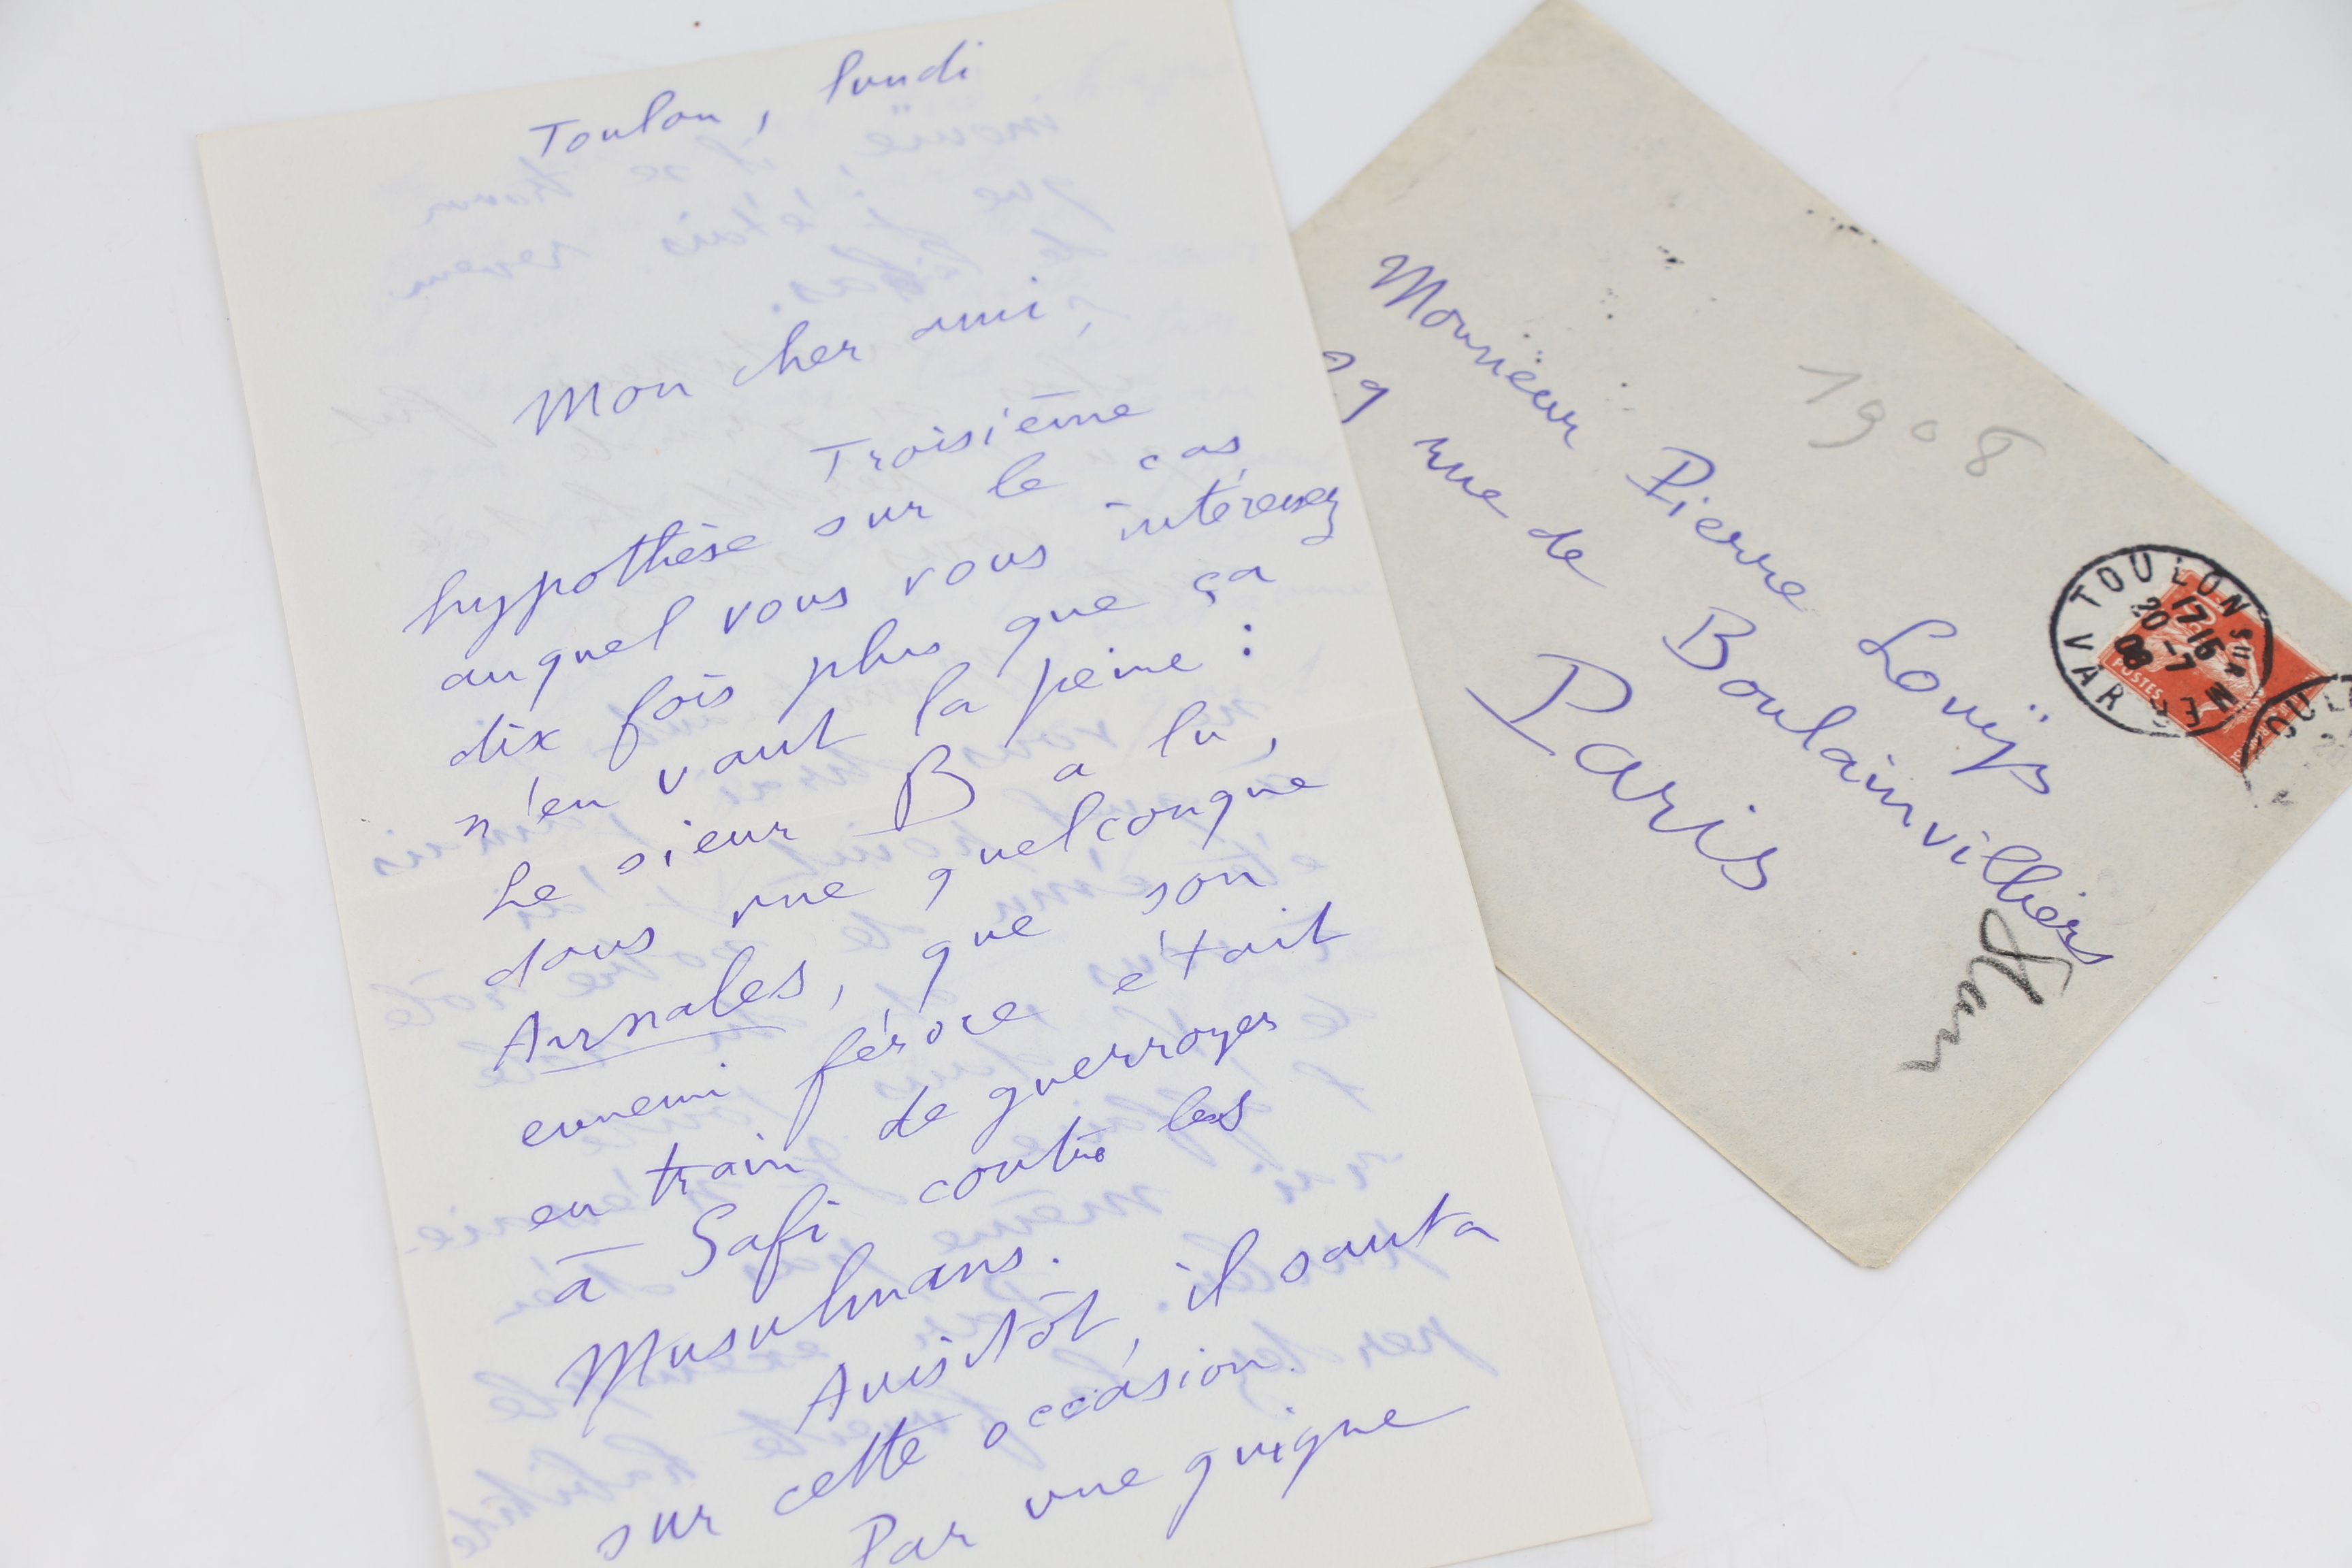 Toulon, lundi
Mon cher ami,
Troisième
hypothèse sur le cas
auquel vous vous intéressez
dix fois plus que ça
n'en vaut la peine :
Le sieur B a lu,
dans une quelconque
Annales, que son
ennemi féroce était
en train de guerroyer
à Safi contre les
Musulmans.
Aussitôt, il sauta
sur cette occasion.
Par une guigne
Monsieur Pierre Louÿs
29 rue de Boulainvilliers
Paris
1908
TOULON SUR MER
17 15
20 -7
08
VAR
POSTES